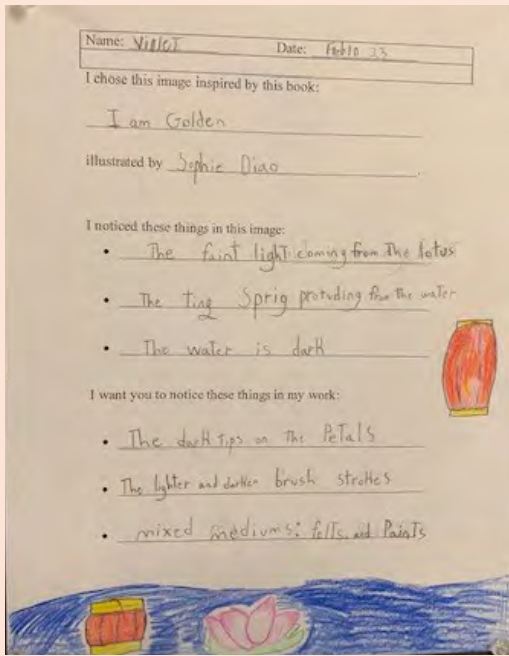 Name: Violet Date: Feb 10 23
I chose this image inspired by this book:
I am Golden
illustrated by Sophie Diao.
I noticed these things in this image:
• The faint light coming from The lotus
• The tiny Sprig protuding from the water
• The water is dark
I want you to notice these things in my work:
• The dark tips on The PeTals
• The lighter and darker brush strokes
• mixed mediums: felts and Paints